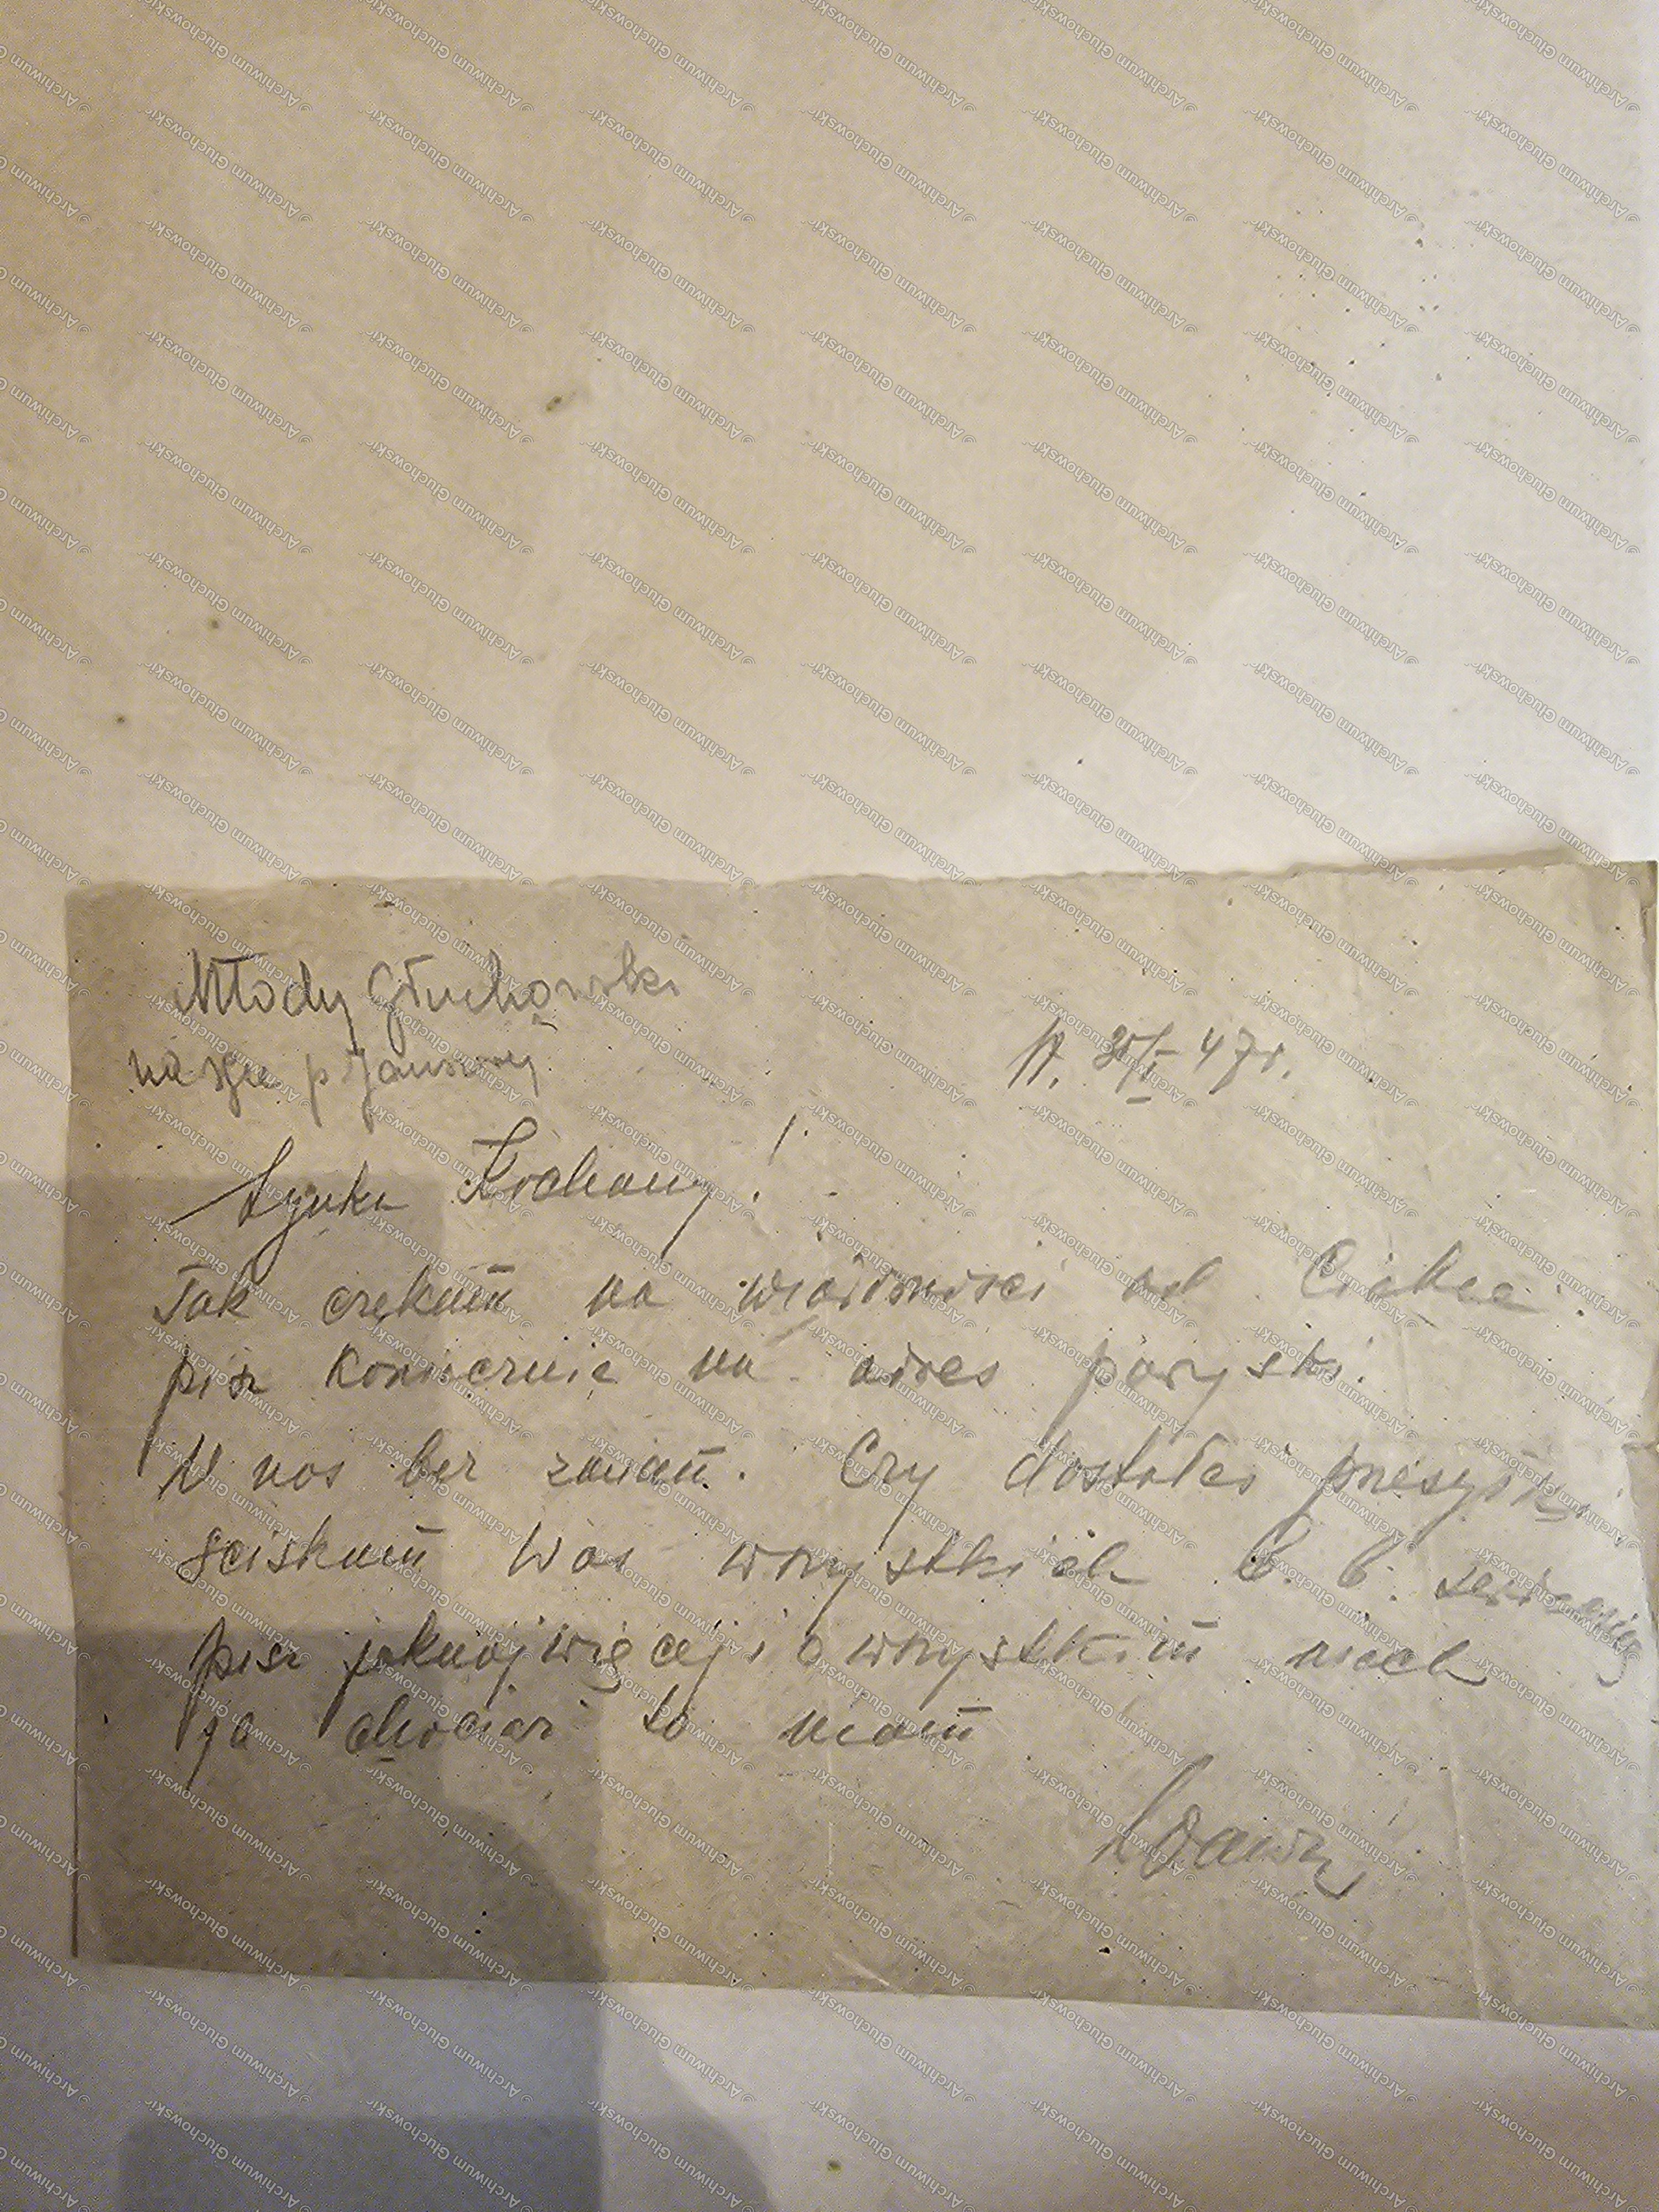 Młody Głuchowski
na ręce p. Janiny
30/I 47r.
Synku Kochany!
Tak czekam na wiadomości od Ciebie.
pisz koniecznie na adres paryski.
U nas bez zmian. Czy dostałeś przesyłkę
ściskam Was wszystkich b. b. serdecznie
pisz jaknajwięcej i o wszystkim niech
ja chociaż to mam